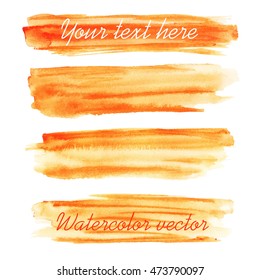 Your text here
Watercolor vector
shutterstock.com · 473790097